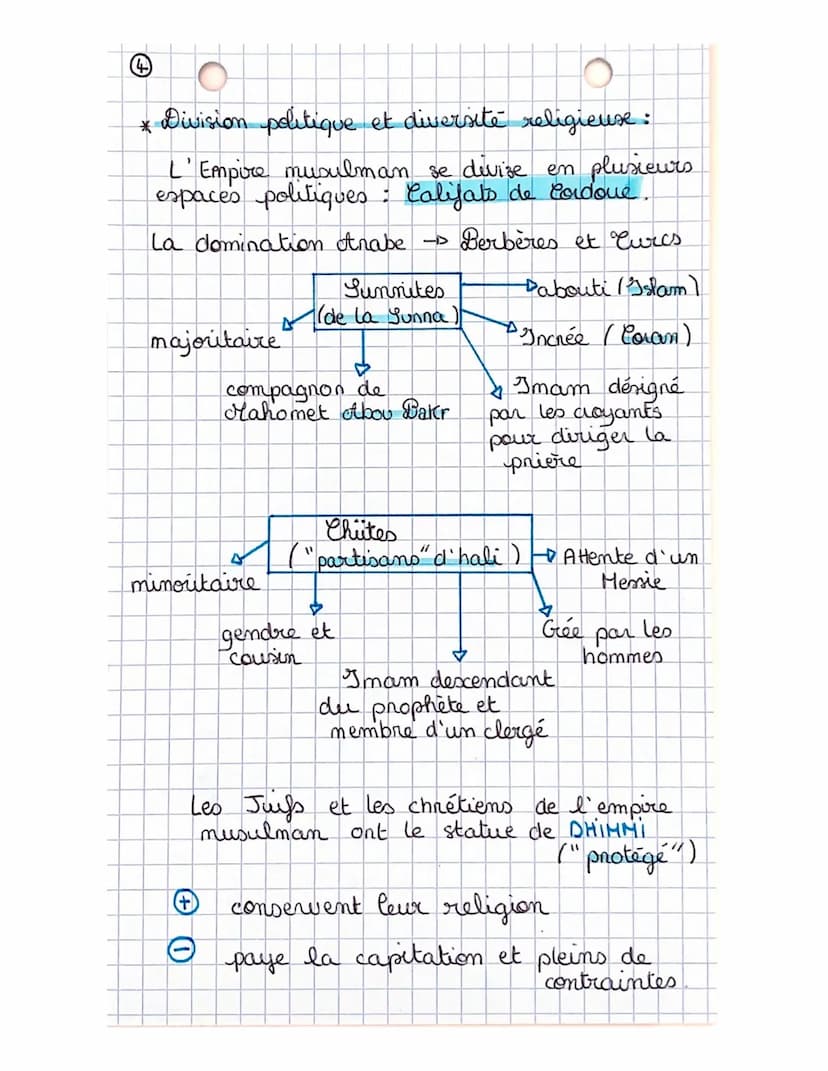 4
* Division politique et diversité religieuse :
L'Empire musulman se divise en plusieurs
espaces politiques : Califats de Cordoue.
La domination Arabe -> Berbères et Turcs
Sunnites
(de la Sunna)
abouti (Islam)
Incréé (Coran)
majoritaire
compagnon de
Mahomet Abou Bakr
Imam désigné
par les croyants
pour diriger la
prière
Chiites
("partisans" d'hali)
Attente d'un
Messie
minoritaire
gendre et
cousin
Créé par les
hommes
Imam descendant
du prophète et
membre d'un clergé
Les Juifs et les chrétiens de l'empire
musulman ont le statue de DHIMMI
("protégé")
+ conservent leur religion
- paye la capitation et pleins de
contraintes.